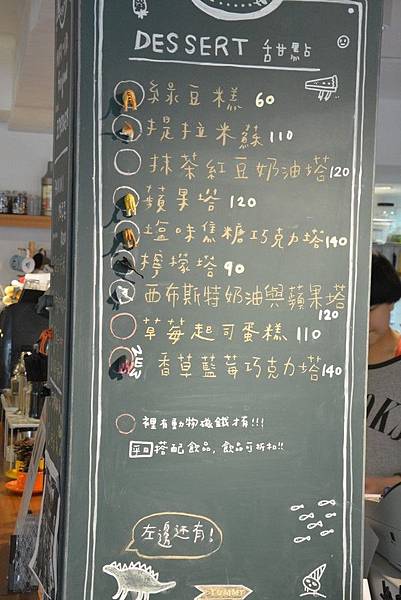 DESSERT 甜點
綠豆糕 60
提拉米蘇 110
抹茶紅豆奶油塔 120
蘋果塔 120
塩味焦糖巧克力塔 140
檸檬塔 90
西布斯特奶油與蘋果塔
120
草莓起司蛋糕 110
NEW 香草藍莓巧克力塔 140
裡有動物磁鐵才有!!!
平日 搭配飲品, 飲品可折扣!!
左邊还有!
YUMMY